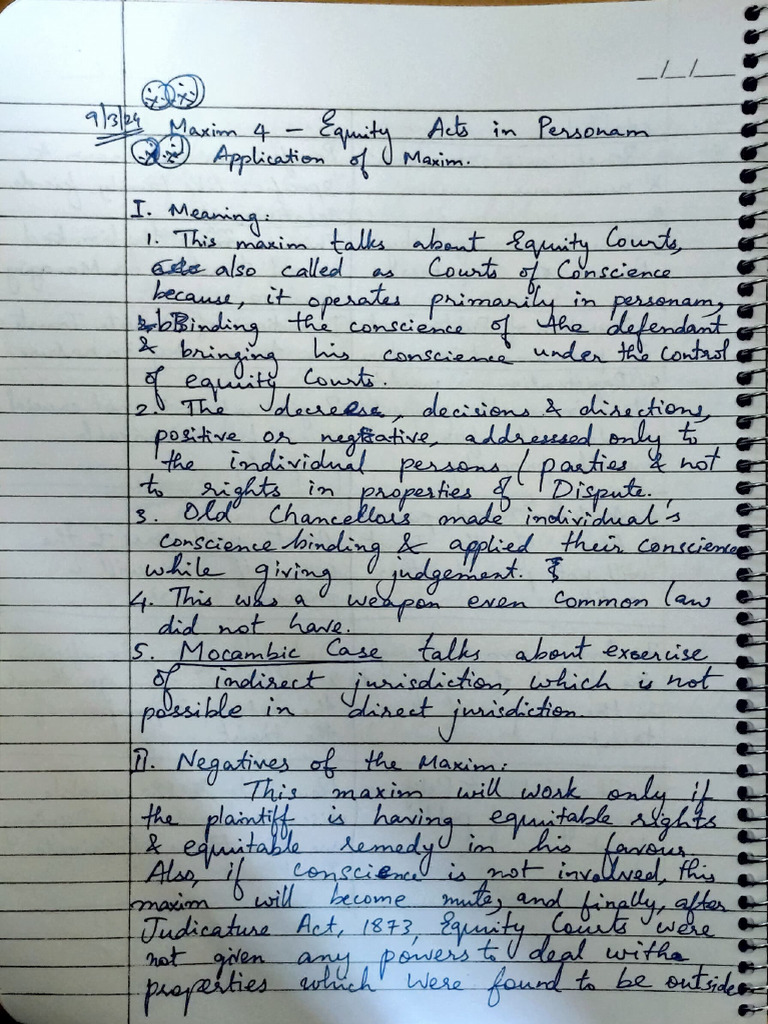 _/_/__
9/3/24 Maxim 4 – Equity Acts in Personam
Application of Maxim.
I. Meaning:
1. This maxim talks about Equity Courts,
also called as Courts of Conscience
because, it operates primarily in personam,
Binding the conscience of the defendant
& bringing his conscience under the control
of equity Courts.
2. The decrees, decisions & directions,
positive or negative, addressed only to
the individual persons / parties & not
to rights in properties of Dispute.
3. Old Chancellors made individual's
conscience binding & applied their conscience
while giving judgement.
4. This was a weapon even common law
did not have.
5. Mocambic Case talks about exercise
of indirect jurisdiction, which is not
possible in direct jurisdiction.
II. Negatives of the Maxim:
This maxim will work only if
the plaintiff is having equitable rights
& equitable remedy in his favour.
Also, if conscience is not involved, this
maxim will become mute, and finally, after
Judicature Act, 1873, Equity Courts were
not given any powers to deal with
properties which were found to be outside